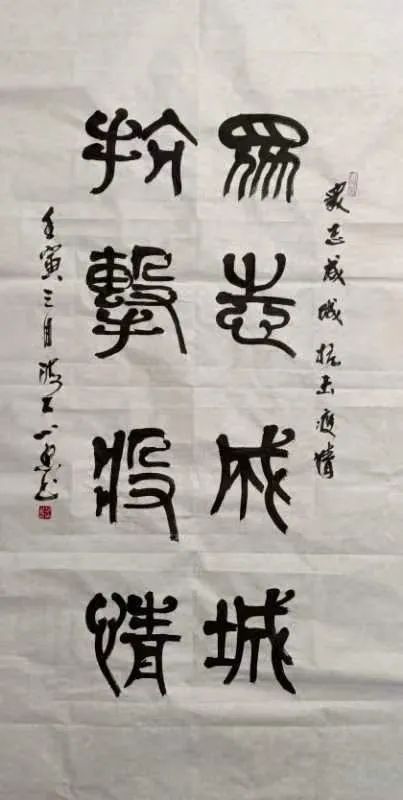 衆志成城抗击疫情
眾志成城
抗擊疫情
壬寅三月书